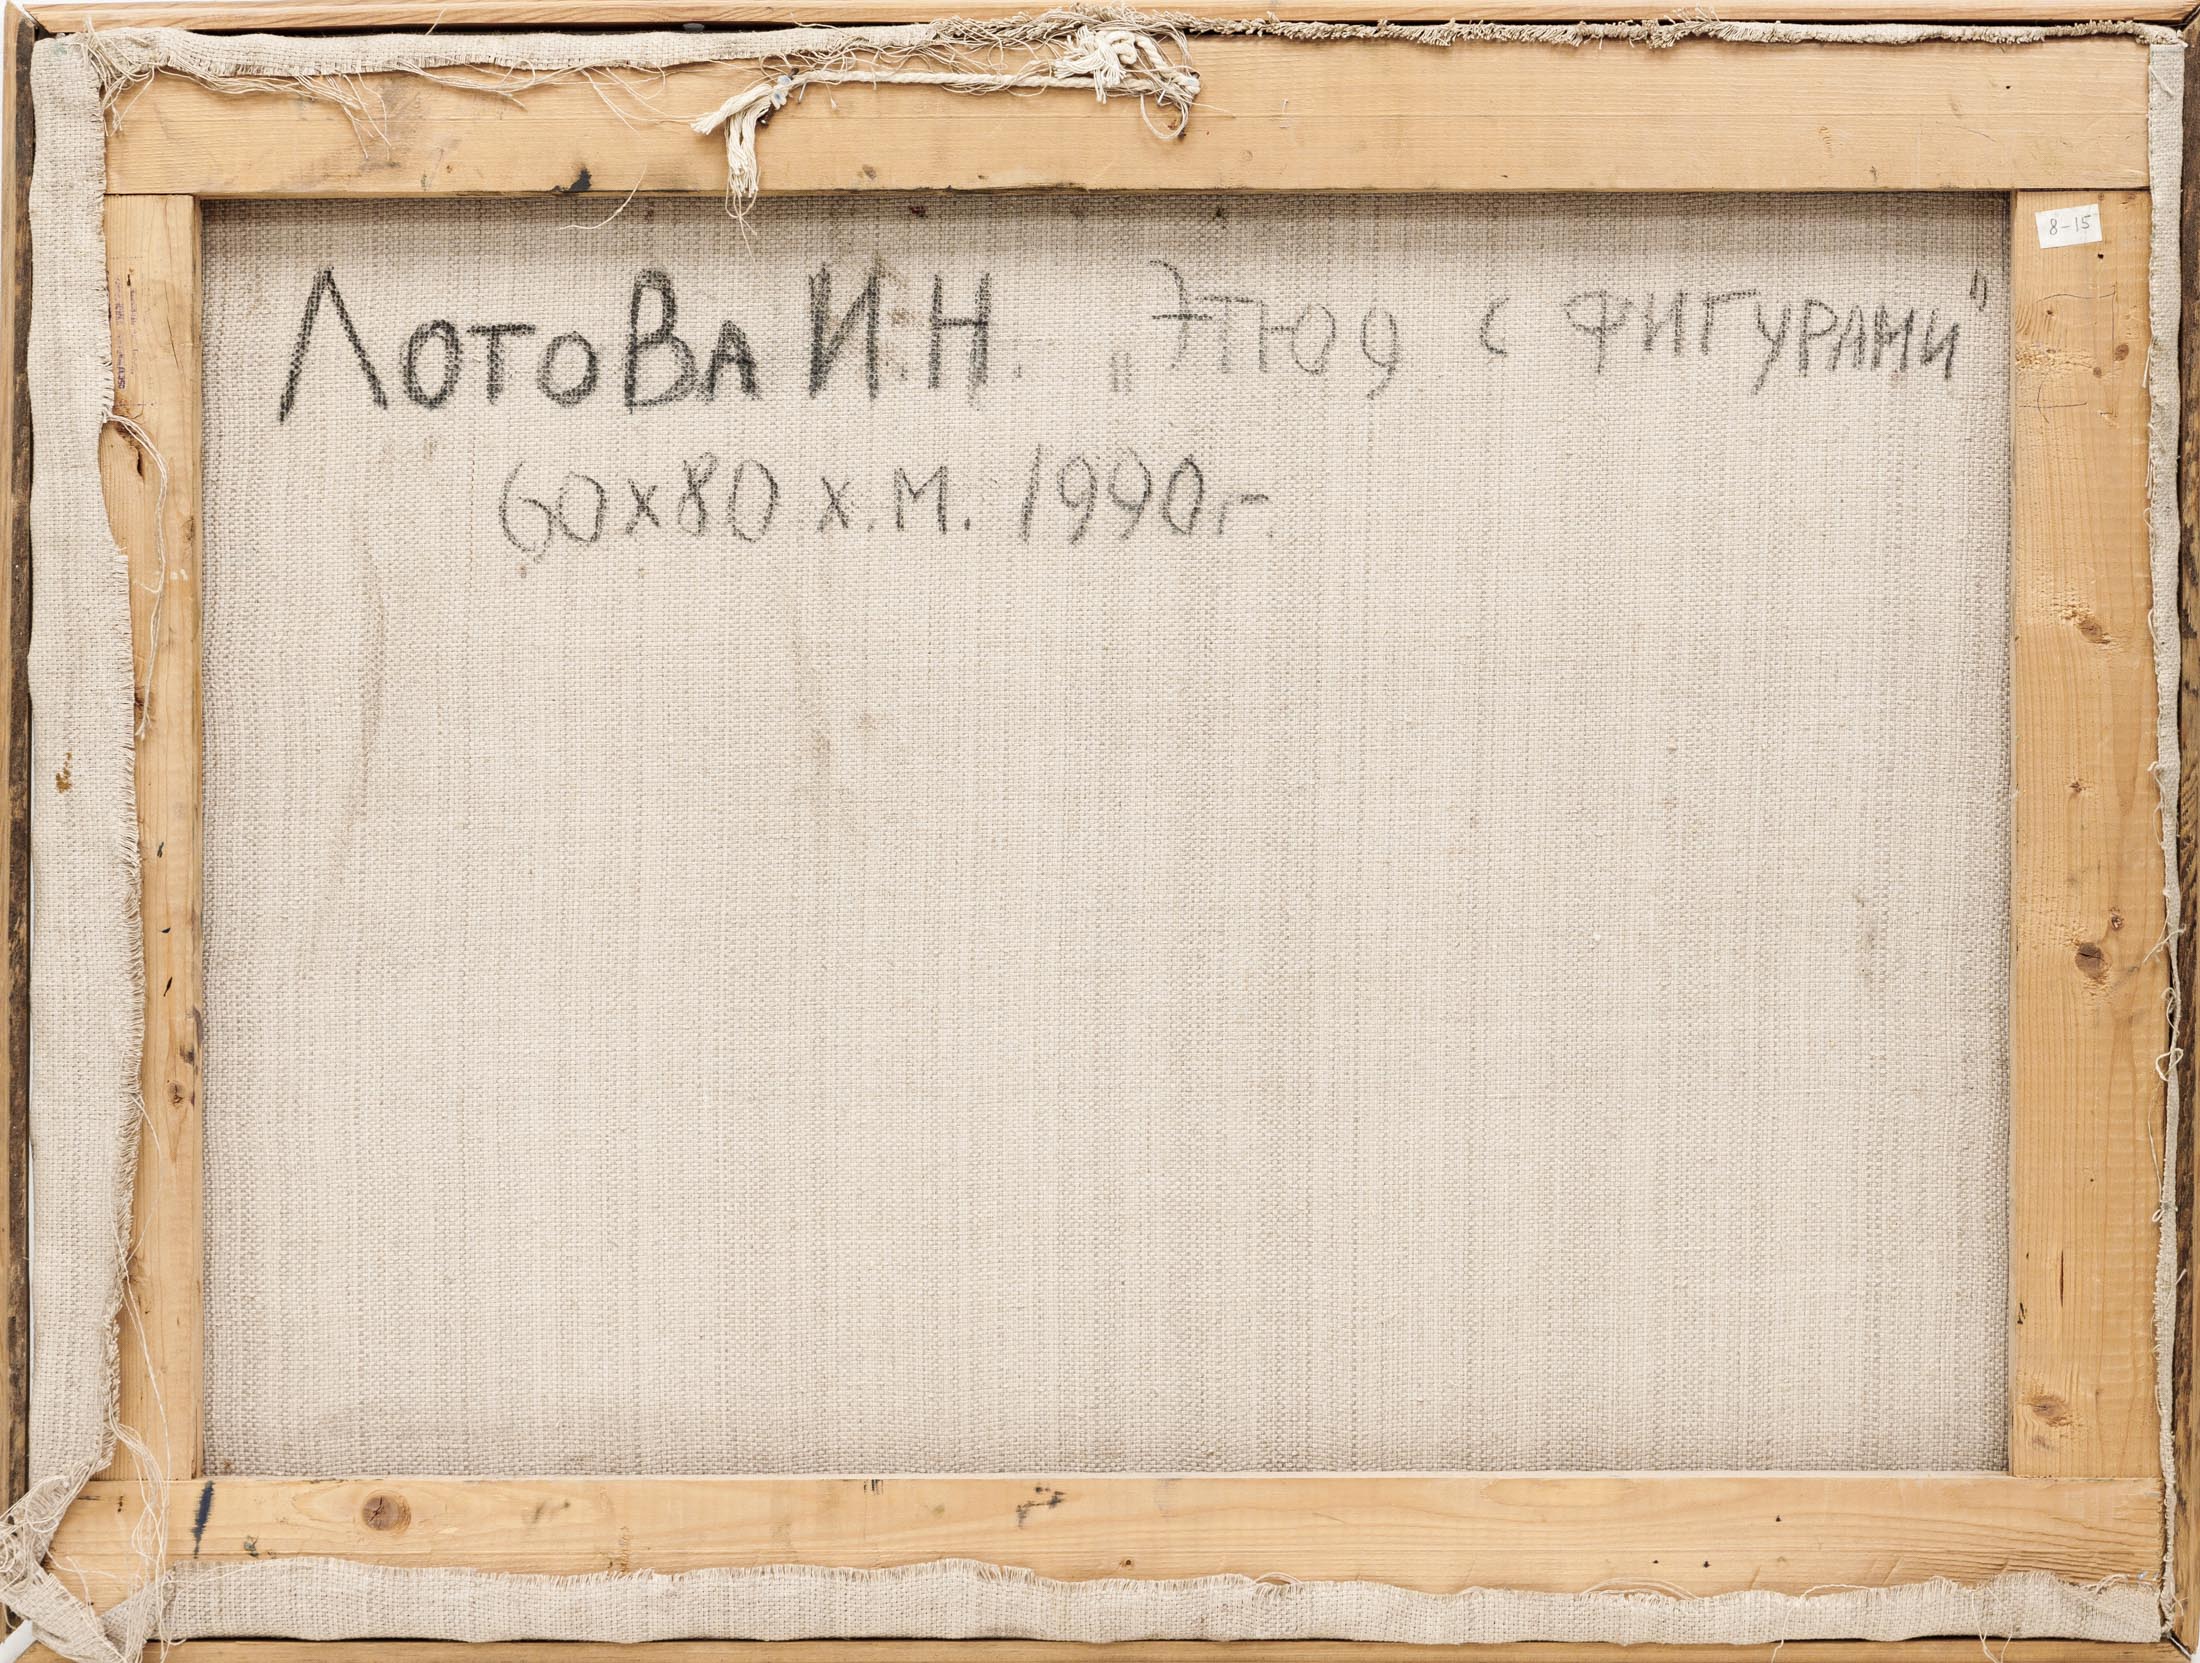 Лотова И.Н. „Этюд с фигурами"
60х80 х.м. 1990г.
8-15